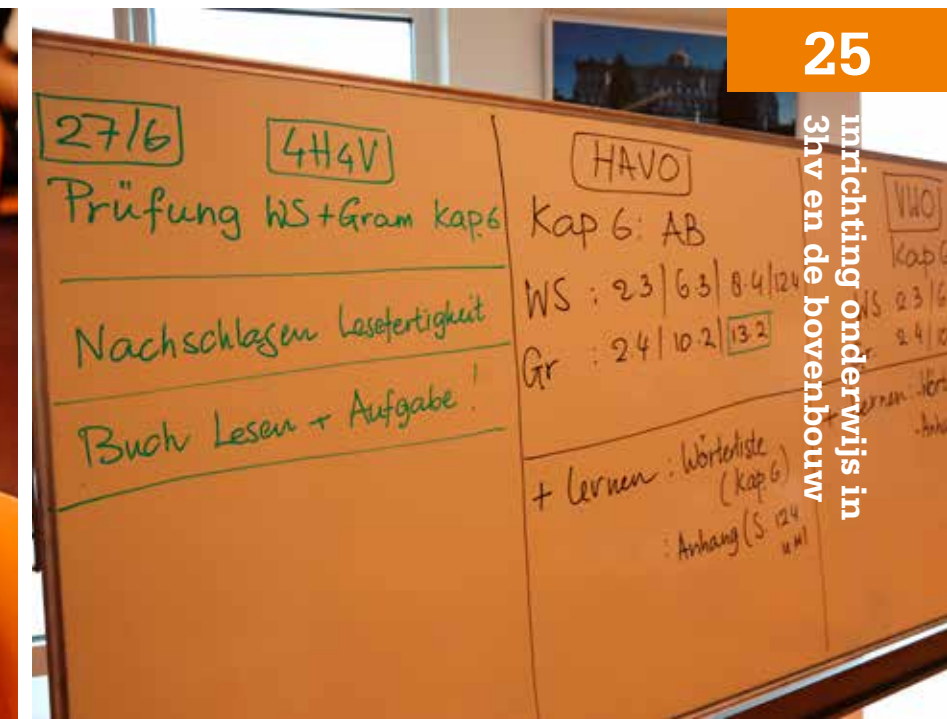 25
inrichting onderwijs in
3hv en de bovenbouw
27/6 4H4V
Prüfung WS+Gram Kap.6
Nachschlagen Lesefertigkeit
Buch Lesen + Aufgabe!
HAVO
Kap 6: AB
WS : 2.3 | 6.3 | 8.4 | 12.4
Gr : 2.4 | 10.2 | 13.2
+ lernen : Wörterliste
(Kap.6)
: Anhang (S. 124
VWO
Kap 6
WS 2.3
Gr. 2.4
+ lernen :